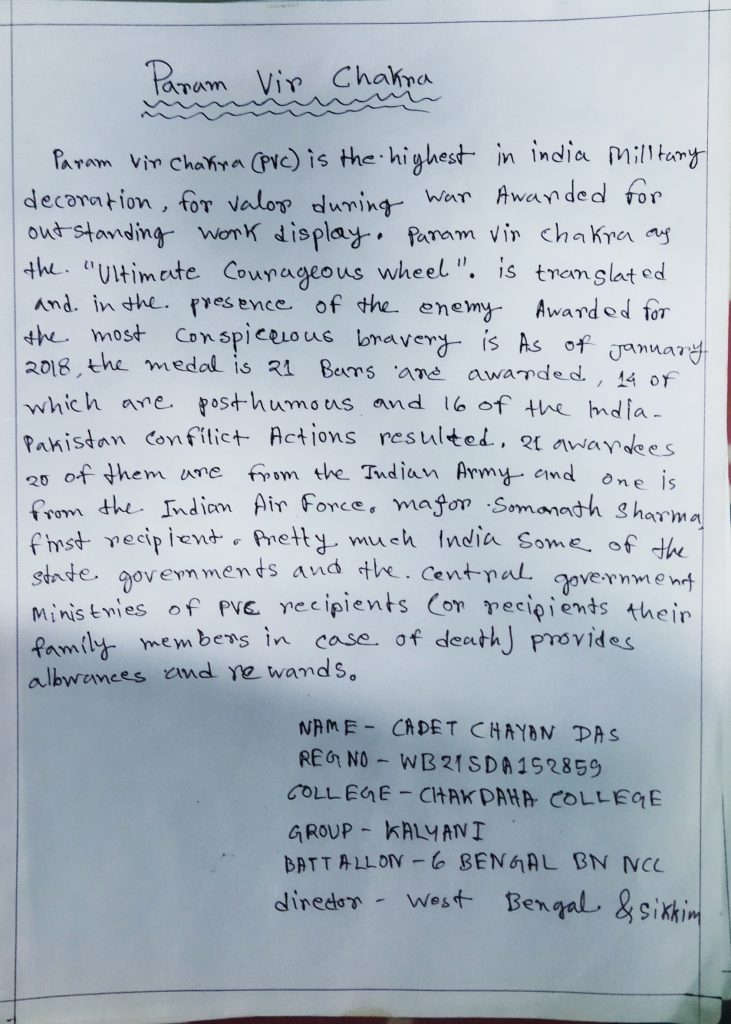 Param Vir Chakra
Param Vir Chakra (PVC) is the highest in india Military
decoration, for valor during war Awarded for
outstanding work display. Param Vir Chakra as
the. "Ultimate Courageous wheel". is translated
and. in the. presence of the enemy Awarded for
the most Conspiceuous bravery is As of January
2018, the medal is 21 Bars are awarded, 14 of
which are posthumous and 16 of the India-
Pakistan Confilict Actions resulted. 21 awardees
20 of them are from the Indian Army and one is
from the Indian Air Force. major Somanath Sharma
first recipient. Pretty much India Some of the
state governments and the. Central government
Ministries of PVC recipients (or recipients their
family members in case of death) provides
allowances and rewards.
NAME - CADET CHAYAN DAS
REG NO - WB21SDA152859
COLLEGE - CHAKDAHA COLLEGE
GROUP - KALYANI
BATTALLON - 6 BENGAL BN NCC
director - West Bengal & Sikkim